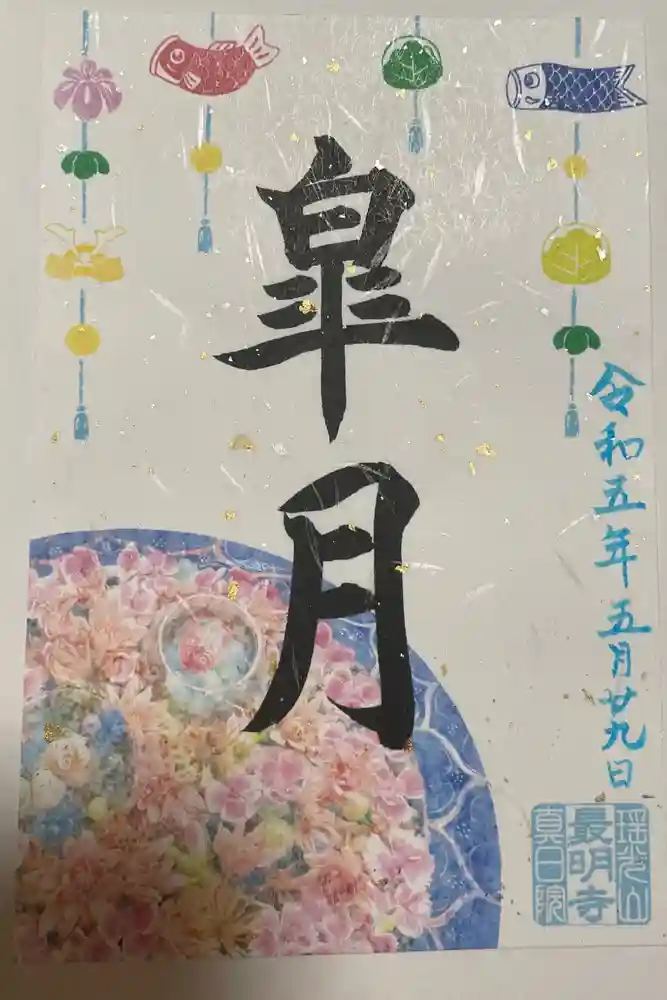 皐月
令和五年五月廿九日
瑶光山
最明寺
真日院